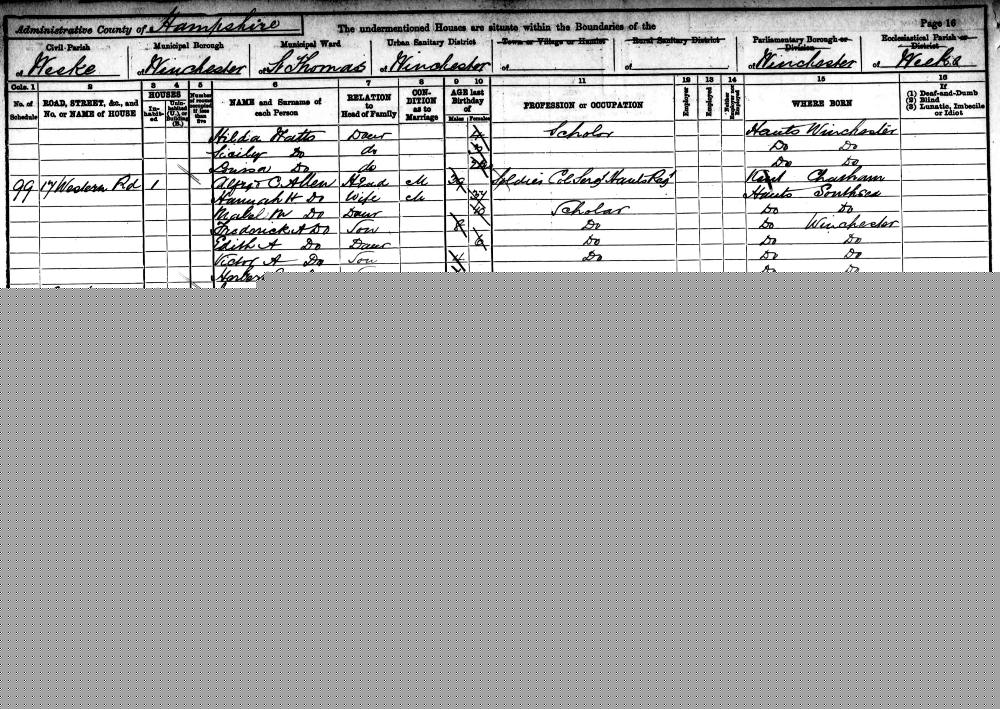 Administrative County of Hampshire The undermentioned Houses are situate within the Boundaries of the Page 16
Civil Parish Municipal Borough Municipal Ward Urban Sanitary District Town or Village or Hamlet Rural Sanitary District Parliamentary Borough or Division Ecclesiastical Parish or District
of Weeke of Winchester of St Thomas of Winchester of of of Winchester of Weeke
Cols. 1 2 3 4 5 6 7 8 9 10 11 12 13 14 15 16
No. of Schedule ROAD, STREET, &c., and No. or NAME of HOUSE HOUSES In-habit-ed Unin-habited (U.) or Building (B.) Number of rooms occupied if less than five NAME and Surname of each Person RELATION to Head of Family CON-DITION as to Marriage AGE last Birthday of Males Females PROFESSION or OCCUPATION Employer Employed Neither Employer nor Employed WHERE BORN If (1) Deaf-and-Dumb (2) Blind (3) Lunatic, Imbecile or Idiot
Hilda Daur Scholar Hants Winchester
Do do Do Do
Louisa Do do Do Do
99 17 Western Rd 1 Alfred C. Allen Head M 39 Soldier Col Sergt Hants Regt Kent Chatham
Hannah H Do Wife M 37 Hants Southsea
Mabel M Do Daur 10 Scholar Do Do
Frederick A Do Son 8 Do Do Winchester
Edith A Do Daur 6 Do Do Do
Victor A Do Son 4 Do Do Do
Do Do